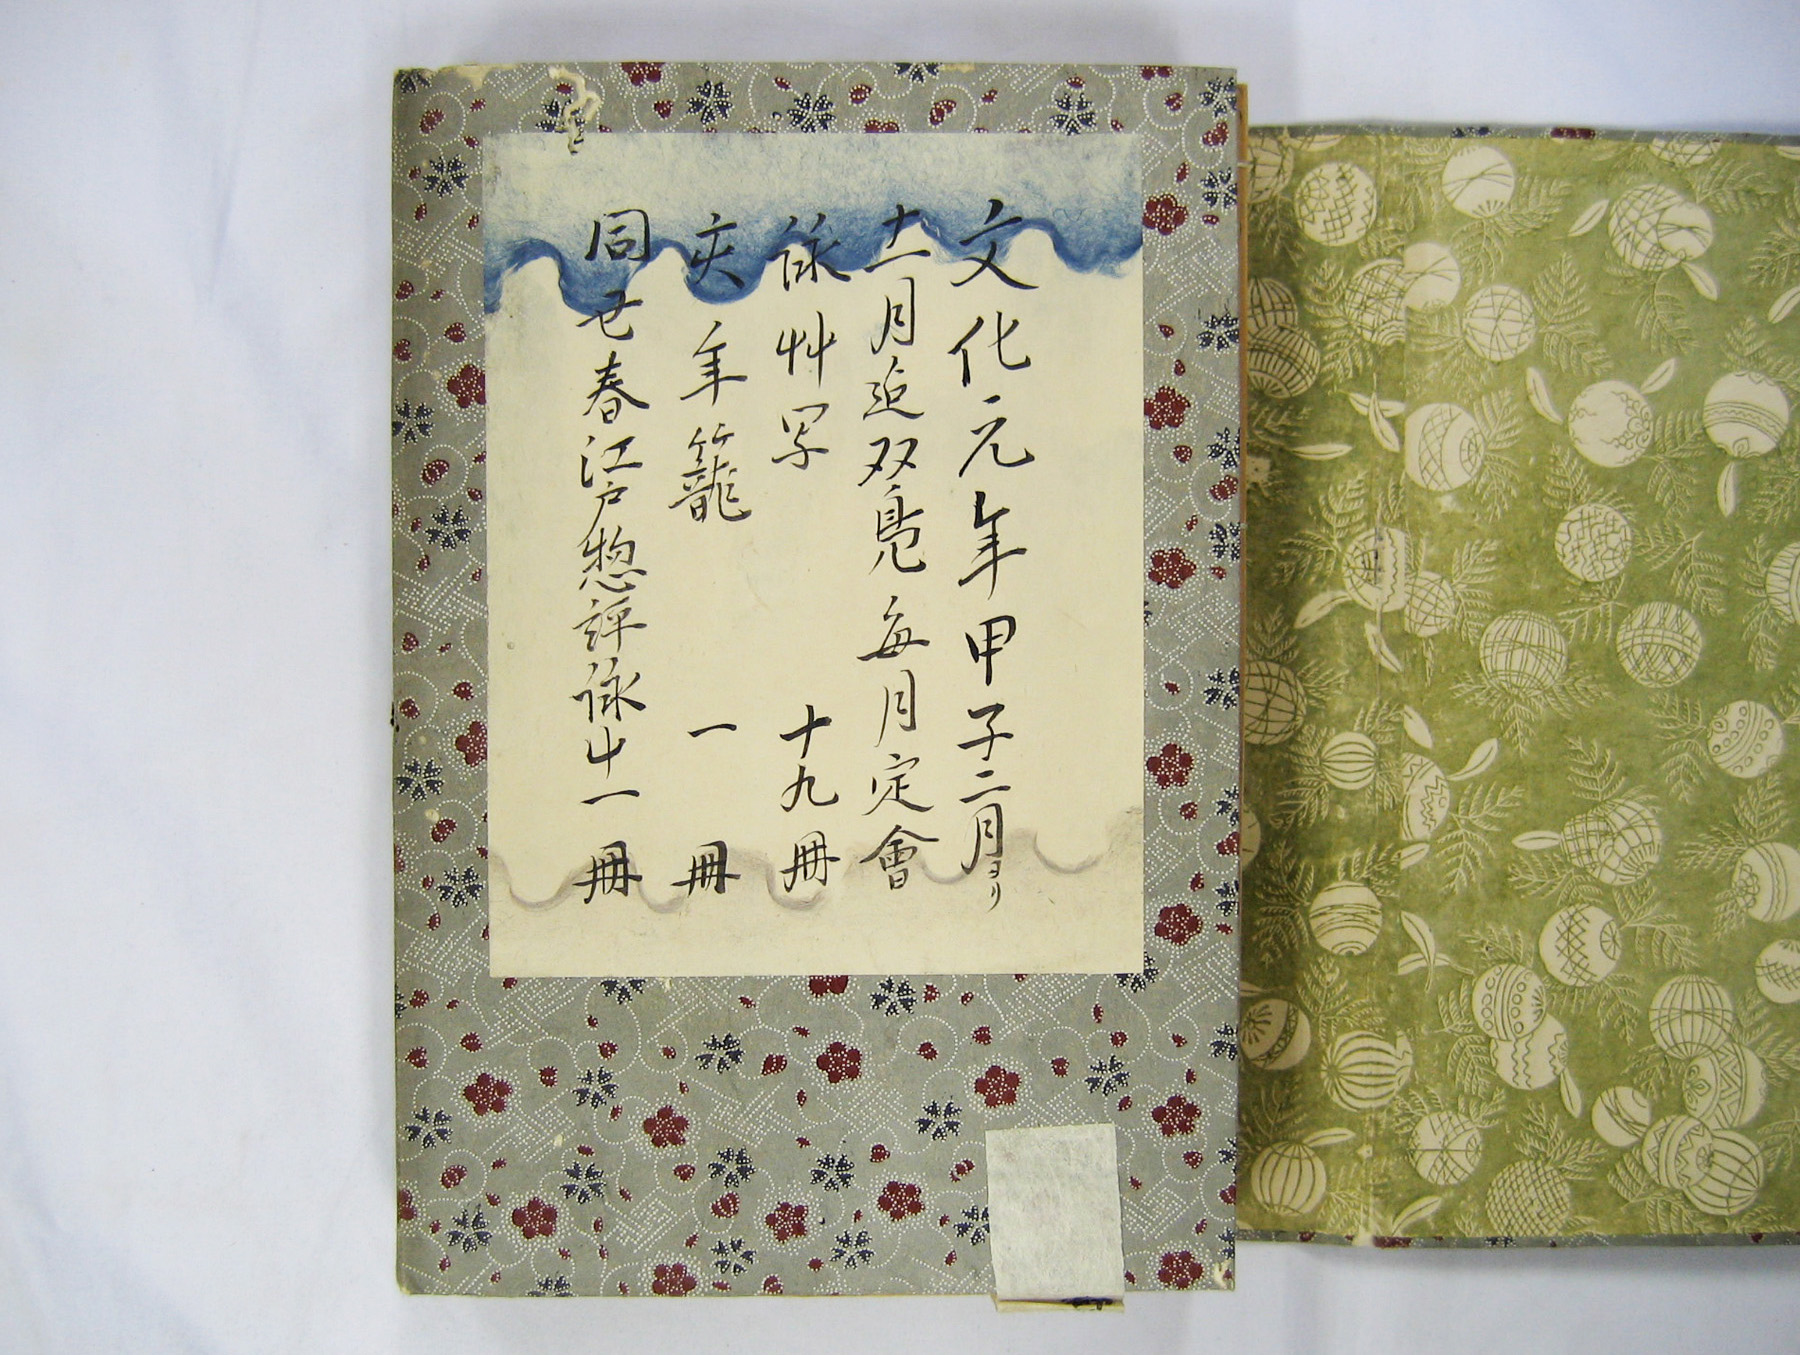 文化元年甲子二月ヨリ
十二月迄双鳬毎月定會
詠艸写 十九冊
亥年籠 一冊
同丑春江戸惣評詠艸一冊